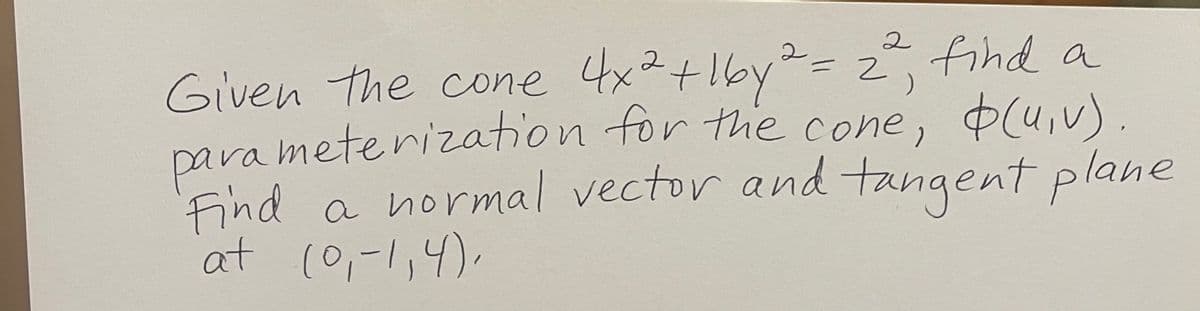 Given the cone 4x²+16y²= z², find a
parameterization for the cone, Φ(u,v).
Find a normal vector and tangent plane
at (0,-1,4).